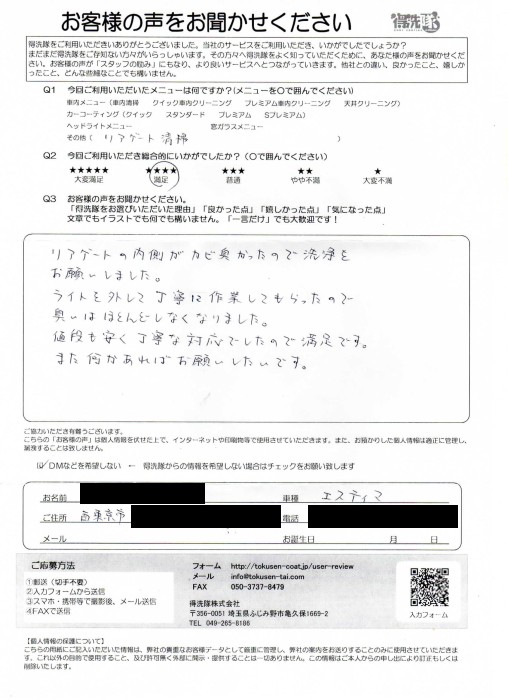 お客様の声をお聞かせください
得洗隊
得洗隊をご利用いただきありがとうございました。当社のサービスをご利用いただき、いかがでしたでしょうか？
まだまだ得洗隊をご存知ない方々がいらっしゃいます。その方々へ得洗隊をよく知っていただくために、あなた様の声をお聞かせください。お客様の声が「スタッフの励み」にもなり、より良いサービスへとつながっていきます。他社との違い、良かったこと、嬉しかったこと、どんな些細なことでも構いません。
Q1 今回ご利用いただいたメニューは何ですか？(メニューを〇で囲んでください)
車内メニュー（車内清掃 クイック車内クリーニング プレミアム車内クリーニング 天井クリーニング）
カーコーティング（クイック スタンダード プレミアム Sプレミアム）
ヘッドライトメニュー 窓ガラスメニュー
その他（ リアゲート清掃 ）
Q2 今回ご利用いただき総合的にいかがでしたか？（〇で囲んでください）
★★★★★ ★★★★ ★★★ ★★ ★
大変満足 満足 普通 やや不満 大変不満
Q3 お客様の声をお聞かせください。
「得洗隊をお選びいただいた理由」「良かった点」「嬉しかった点」「気になった点」
文章でもイラストでも何でも構いません。「一言だけ」でも大歓迎です！
リアゲートの内側がカビ臭かったので洗浄を
お願いしました。
ライトを外して丁寧に作業してもらったので
臭いはほとんどしなくなりました。
値段も安く丁寧な対応でしたので満足です。
また何かあればお願いしたいです。
ご協力いただき有難うございます。
こちらの「お客様の声」は個人情報を伏せた上で、インターネットや印刷物等で使用させていただきます。また、お預かりした個人情報は適正に管理し、
漏洩することは致しません。
DMなどを希望しない ← 得洗隊からの情報を希望しない場合はチェックをお願い致します
お名前 車種 エスティマ
ご住所 西東京市 電話
メール お誕生日 月 日
ご応募方法
①郵送（切手不要）
②入力フォームから送信
③スマホ・携帯等で撮影後、メール送信
④FAXで送信
フォーム http://tokusen-coat.jp/user-review
メール info@tokusen-tai.com
FAX 050-3737-8479
得洗隊株式会社
〒356-0051 埼玉県ふじみ野市亀久保1669-2
TEL 049-265-8186
入力フォーム
【個人情報の保護について】
こちらの用紙にご記入いただいた情報は、弊社の貴重なお客様データとして厳重に管理し、弊社の案内をお送りすることのみに使用させていただきます。これ以外の目的で使用すること、及び許可無く外部に開示・提供することは一切ありません。この情報はご本人からの申し出により訂正もしくは削除いたします。